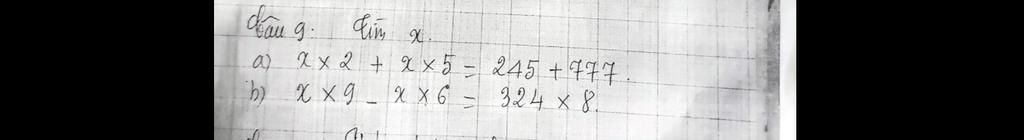 Câu 9. Tìm x.
a) x × 2 + x × 5 = 245 + 777.
b) x × 9 - x × 6 = 324 × 8.